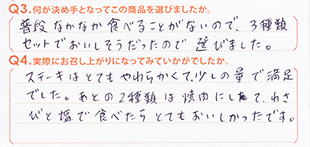 Q3.何が決め手となってこの商品を選びましたか。
普段なかなか食べることがないので、3種類
セットでおいしそうだったので 選びました。
Q4.実際にお召し上がりになってみていかがでしたか。
ステーキはとてもやわらかくて、少しの量で満足
でした。あとの2種類は焼肉にして、わさ
びと塩で食べたらとてもおいしかったです。